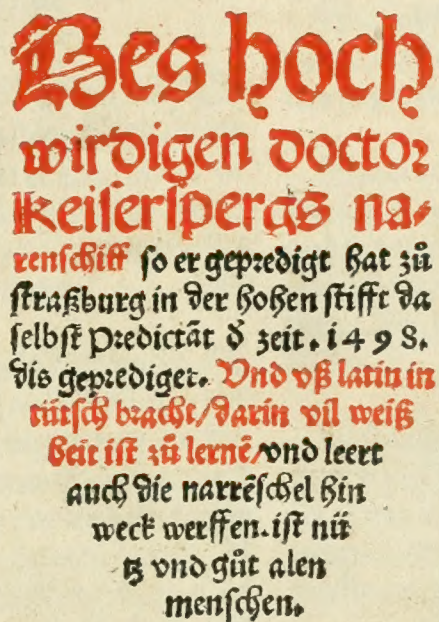 Des hoch
wirdigen doctor
Keiserspergs na⸗
renschiff so er gepredigt hat zů
straßburg in der hohen stifft da
selbst Predictāt d̕ zeit. 1498.
dis geprediget. Vnd vß latin in
tütsch bracht/ darin vil weiß
heit ist zů lernē/ vnd leert
auch die narrēschel hin
weck werffen. ist nü
tz vnd gůt alen
menschen.